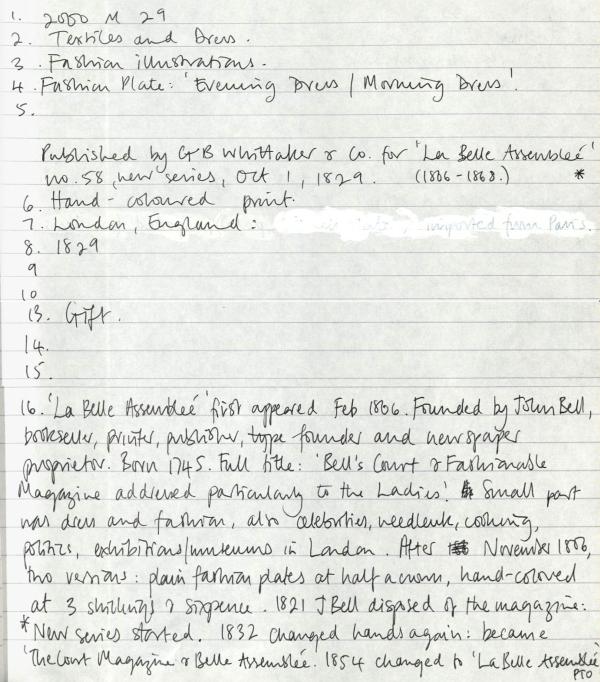 1. 2000 M 29
2. Textiles and Dress.
3. Fashion illustrations.
4. Fashion Plate: 'Evening Dress / Morning Dress'.
5.
Published by G B Whittaker & Co. for 'La Belle Assembleé'
no. 58, new series, Oct 1, 1829. (1806-1868.) *
6. Hand-coloured print.
7. London, England: , imported from Paris.
8. 1829
9
10
13. Gift.
14.
15.
16. 'La Belle Assembleé' first appeared Feb 1806. Founded by John Bell,
bookseller, printer, publisher, type founder and newspaper
proprietor. Born 1745. Full title: 'Bell's Court & Fashionable
Magazine addressed particularly to the Ladies'. Small part
was dress and fashion, also celebrities, needlewk, cooking,
politics, exhibitions/museums in London. After November 1806,
two versions: plain fashion plates at half a crown, hand-colored
at 3 shillings & sixpence. 1821 J Bell disposed of the magazine:
* New series started. 1832 changed hands again: became
'The Court Magazine & Belle Assembleé. 1854 changed to 'La Belle Assembleé
PTO